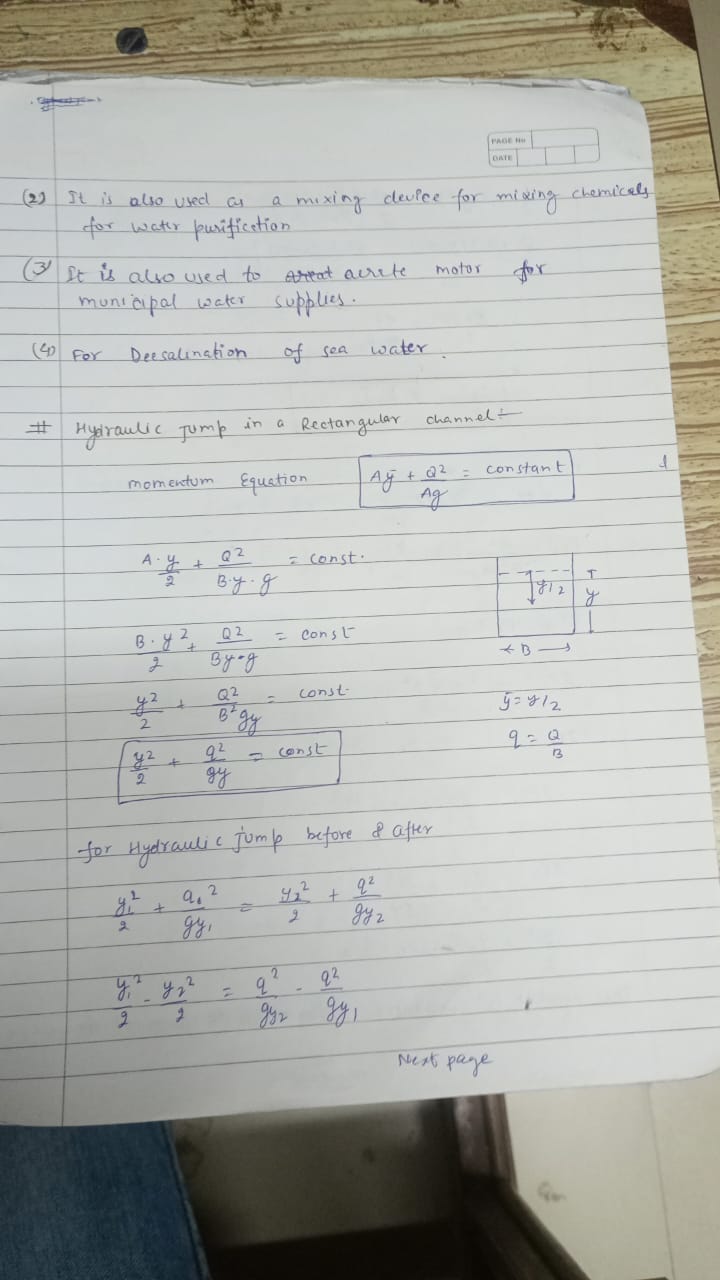 PAGE No
DATE
(2) It is also used as a mixing device for mixing chemicals
for water purification
(3) It is also used to aerete motor for
municipal water supplies.
(4) For Deesalination of sea water.
# Hydraulic Jump in a Rectangular channel:-
momentum Equation Aȳ + Q²/Ag = constant 1
A·y/2 + Q²/B·y·g = const.
y/2 y
B·y²/2 + Q²/By·g = const
B
y²/2 + Q²/B²gy = const.
ȳ = y/2
y²/2 + q²/gy = const
q = Q/B
for Hydraulic jump before & after
y₁²/2 + q₁²/gy₁ = y₂²/2 + q²/gy₂
y₁²/2 - y₂²/2 = q²/gy₂ - q²/gy₁
Next page